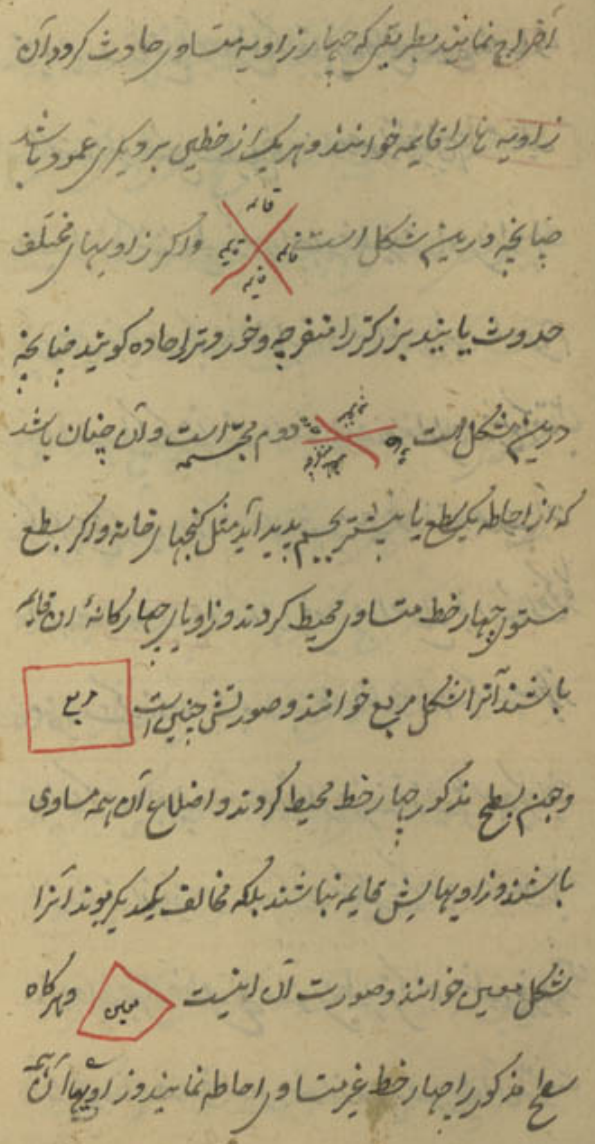 اخراج نمایند بطریقی که چهار زاویه متساوی حادث کردد آن
زاویه ها را قایمه خوانند و هر یک از خطین بر دیکری عمود باشد
چنانچه درین شکل است قائمه قائمه قائمه قائمه و اکر زاویهای مختلف
حدوث یابند بزرکتر را منفرجه و خوردتر را حاده کویند چنانچه
درین شکل است منفرجه حاده منفرجه حاده دوم مجسمه است و آن چنان باشد
که از احاطه یک سطح یا بیشتر بجسم پدید آید مثل کنجهای خانه و اکر بسطح
مستوی چهار خط متساوی محیط کردند و زاویای چهارکانهٔ ان قایمه
باشند آنرا شکل مربع خوانند و صورتش چنین است مربع
و چون بسطح مذکور چهار خط محیط کردند و اضلاع آن همه مساوی
باشند و زاویهایش قایمه نباشند بلکه مخالف یکدیکر بوند آنرا
شکل معین خوانند و صورت آن اینست معین و هرکاه
سطح مذکور را چهار خط غیر متساوی احاطه نمایند و زاویهای آن همه